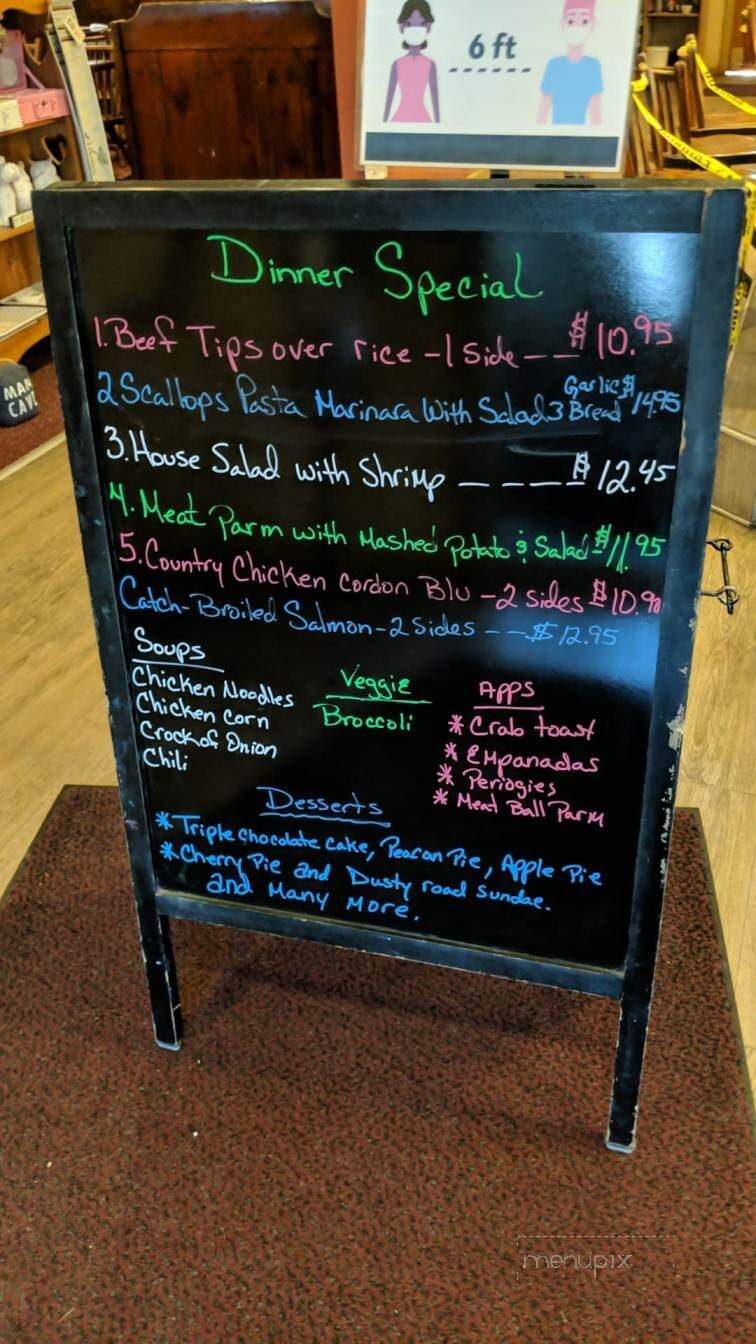 6 ft
Dinner Special
1. Beef Tips over rice - 1 Side -- $10.95
2 Scallops Pasta Marinara With Salad & Garlic Bread $14.95
3. House Salad with Shrimp ---- $12.45
4. Meat Parm with Mashed Potato & Salad $11.95
5. Country Chicken Cordon Blu - 2 sides $10.90
Catch - Broiled Salmon - 2 sides -- $12.95
Soups
Chicken Noodles
Chicken Corn
Crock of Onion
Chili
Veggie
Broccoli
Apps
* Crab toast
* Empanadas
* Periogies
* Meat Ball Parm
Desserts
* Triple Chocolate Cake, Peacan Pie, Apple Pie
* Cherry Pie and Dusty road Sundae.
and Many More.
MAN
CAVE
menupix